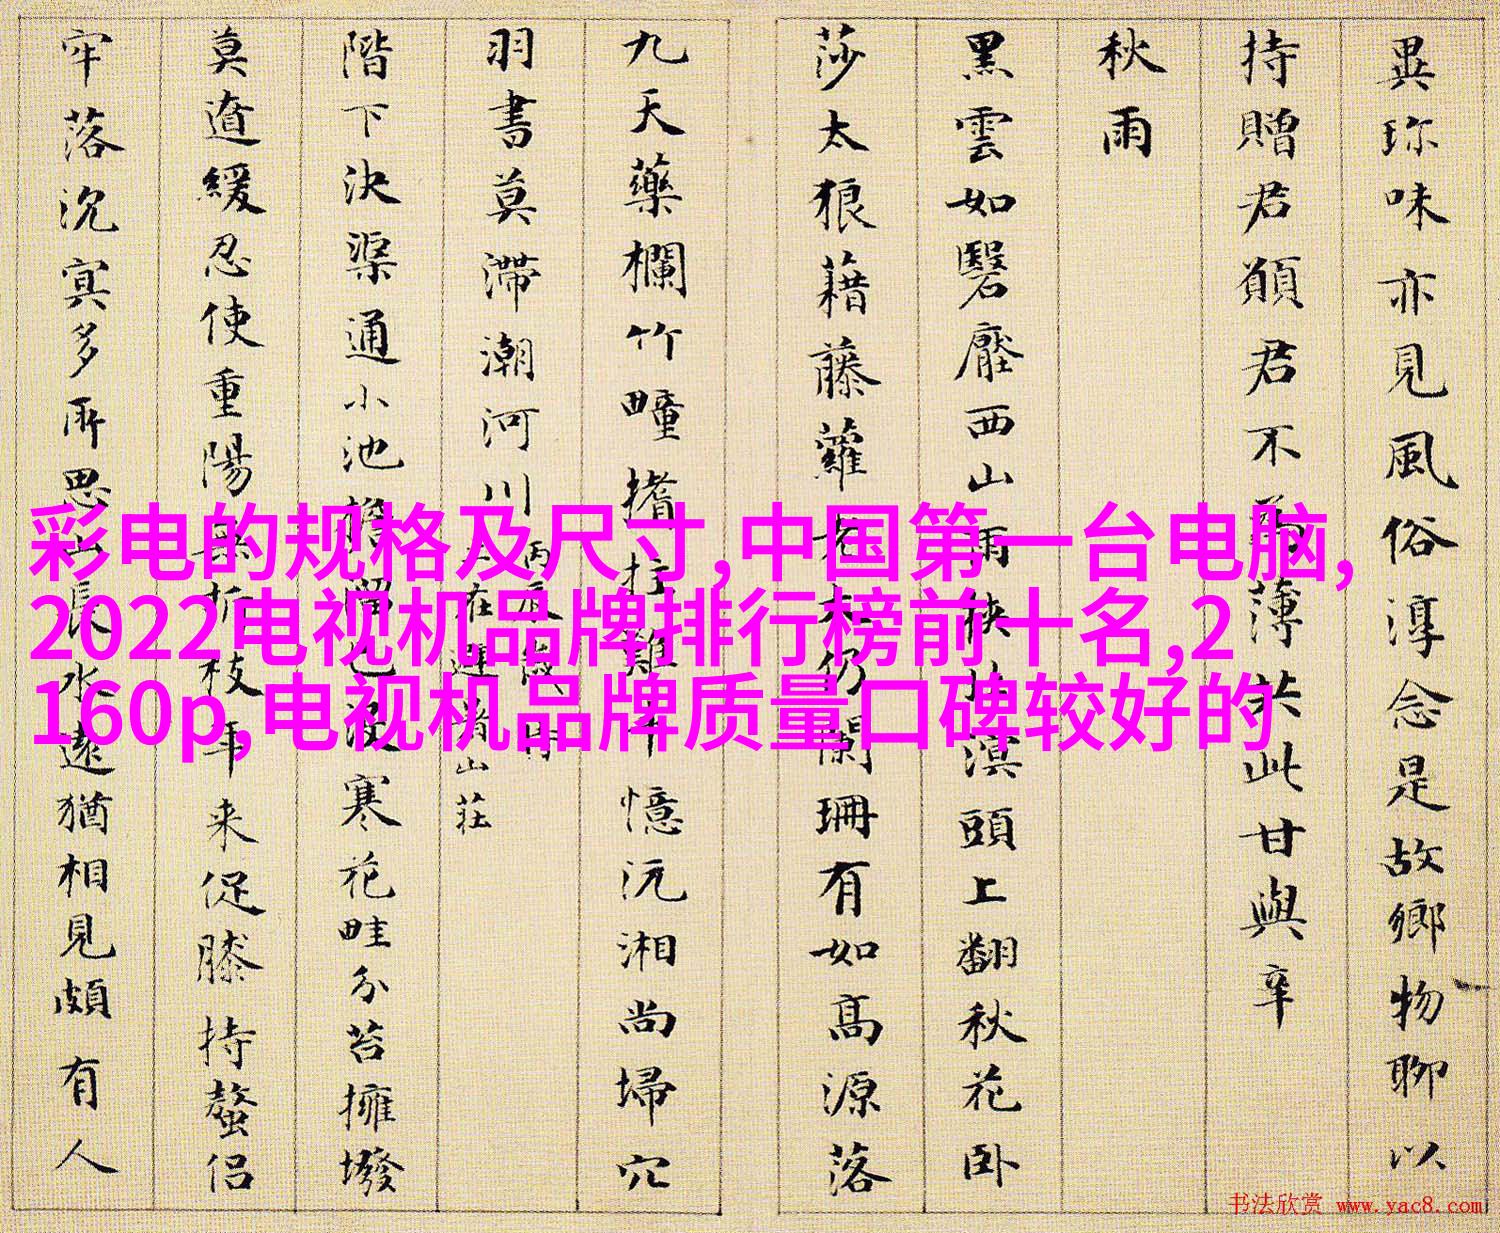 異珎味亦見風俗淳念是故鄉物聊以
持贈君願君不菲薄於此甘與辛
秋雨
黑雲如翳壓西山雨
頭上翻秋花卧
莎太狼藉藤蘿
闌珊有如高源落
九天藥欄竹疃
憶沅湘尚埽穴
羽書莫滯潮河川
階下決渠通小池
寒花畦分苔擁墢
莫遣緩忍使重陽
折枝年来促膝持螯侶
牢落沉冥多所思山長水遠猶相見頗有人
彩电的规格及尺寸,中国第一台电脑,
2022电视机品牌排行榜前十名,2
160p,电视机品牌质量口碑较好的
书法欣赏 www.yac8.com